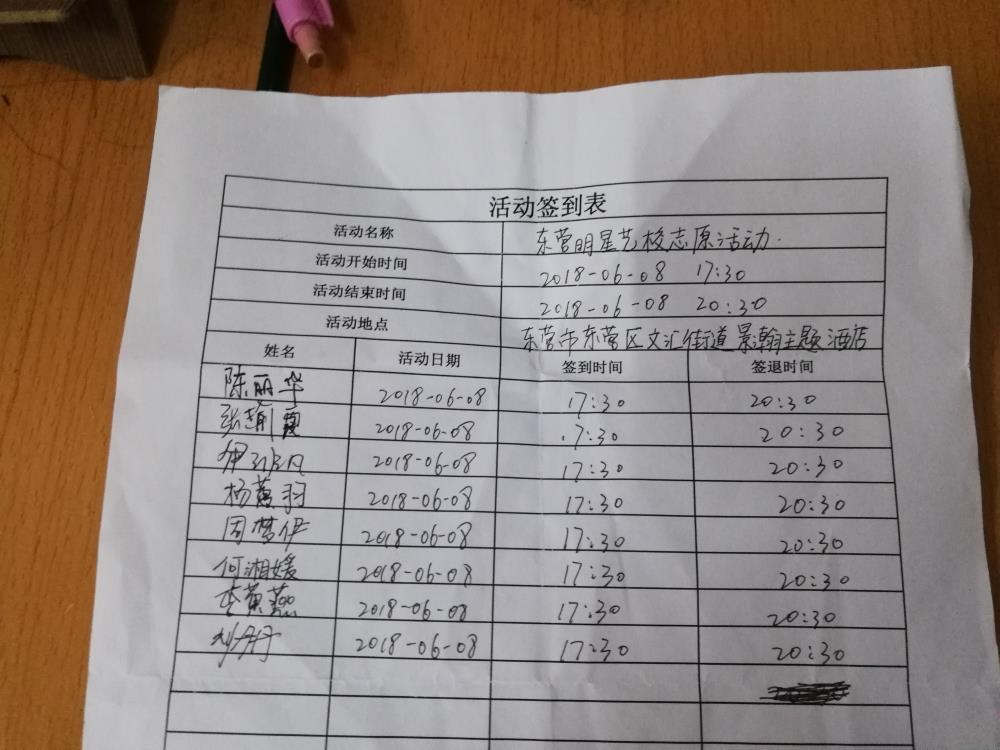 活动签到表
活动名称 东营明星艺校志原活动.
活动开始时间 2018-06-08 17:30
活动结束时间 2018-06-08 20:30
活动地点 东营市东营区文汇街道景瀚主题酒店
姓名 活动日期 签到时间 签退时间
陈丽华 2018-06-08 17:30 20:30
张 2018-06-08 .7:30 20:30
伊 凡 2018-06-08 17:30 20:30
杨 羽 2018-06-08 17:30 20:30
周梦伊 2018-06-08 17:30 20:30
何湘媛 2018-06-08 17:30 20:30
李 燕 2018-06-08 17:30 20:30
2018-06-08 17:30 20:30